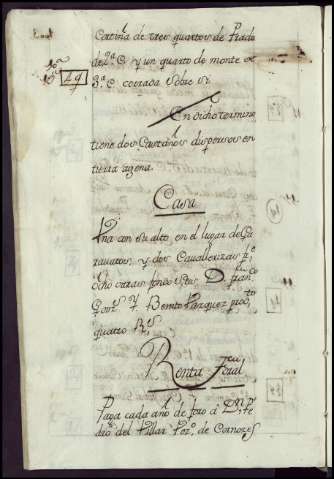 Cortiña de tres quartos de Prado
de 2ª C y un quarto de monte de
3ª C cerrada sobre si
49
En dicho termino
tiene dos Castaños dispersos en
tierra agena.
Casa
Una con su alto en el lugar de
y dos Cavallerizas
ocho varas fondo seis D. Franco
Gonz. y Benito Vazquez
quatro Rs
Renta foral
Paga cada año de foro a Dn Pe
dro del Villar Vezº de